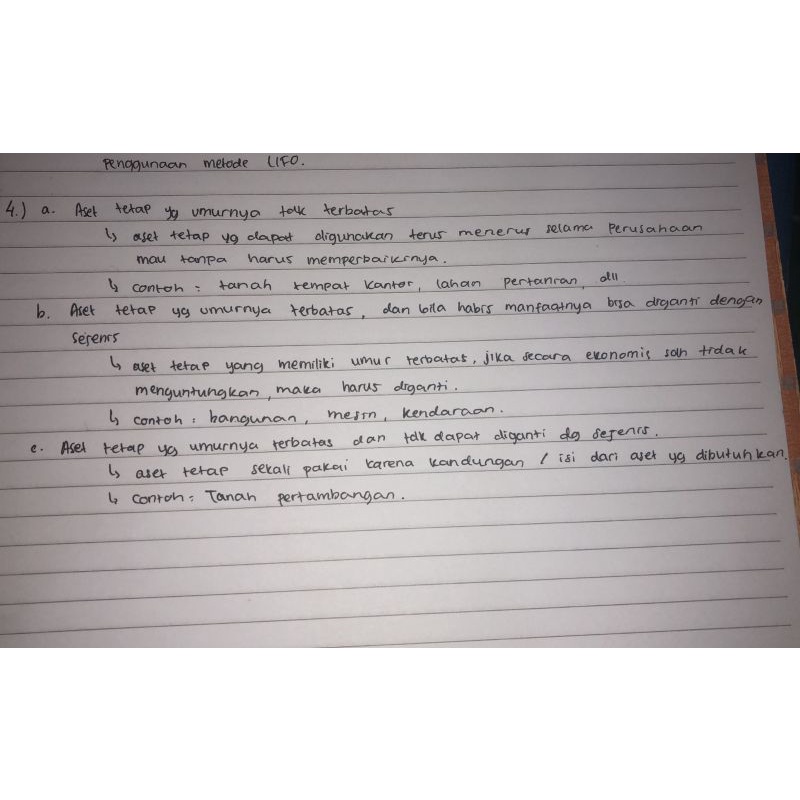 Penggunaan metode LIFO.
4.) a. Aset tetap yg umurnya tdk terbatas
↳ aset tetap yg dapat digunakan terus menerus selama perusahaan
mau tanpa harus memperbaikinya.
↳ contoh : tanah tempat kantor, lahan pertanian, dll
b. Aset tetap yg umurnya terbatas, dan bila habis manfaatnya bisa diganti dengan
sejenis
↳ aset tetap yang memiliki umur terbatas, jika secara ekonomis sdh tidak
menguntungkan, maka harus diganti.
↳ contoh : bangunan, mesin, kendaraan.
c. Aset tetap yg umurnya terbatas dan tdk dapat diganti dg sejenis.
↳ aset tetap sekali pakai karena kandungan / isi dari aset yg dibutuhkan.
↳ contoh : Tanah pertambangan.